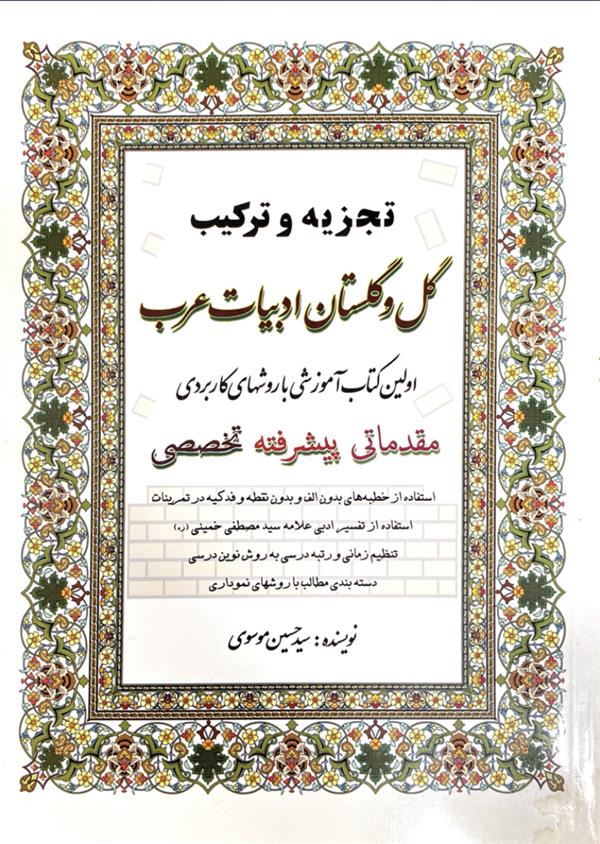 تجزیه و ترکیب
گل و گلستان ادبیات عرب
اولین کتاب آموزشی با روشهای کاربردی
مقدماتی پیشرفته تخصصی
استفاده از خطبه‌های بدون الف و بدون نقطه و فدکیه در تمرینات
استفاده از تفسیر ادبی علامه سید مصطفی خمینی (ره)
تنظیم زمانی و رتبه درسی به روش نوین درسی
دسته بندی مطالب با روشهای نموداری
نویسنده: سید حسین موسوی